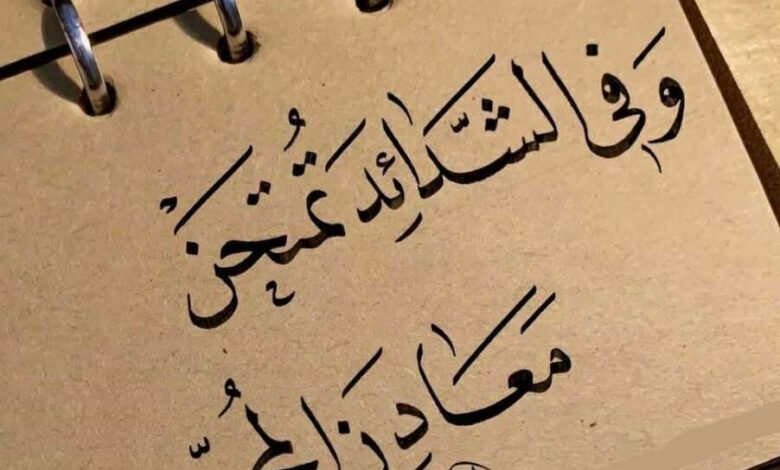 وَفى الشَّدَائِد تُمتَحنْ
مَعَادِن